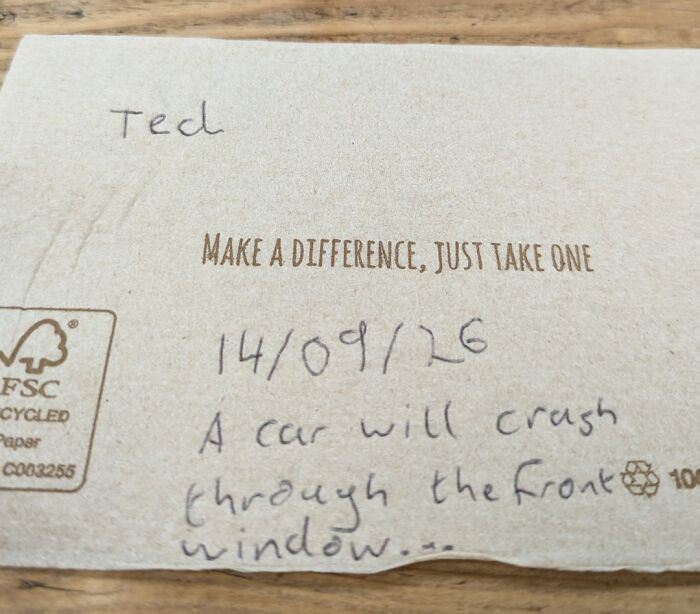 Ted
MAKE A DIFFERENCE, JUST TAKE ONE
14/09/26
®
FSC
CYCLED
Paper
C003255
A car will crash
through the front
100
window...